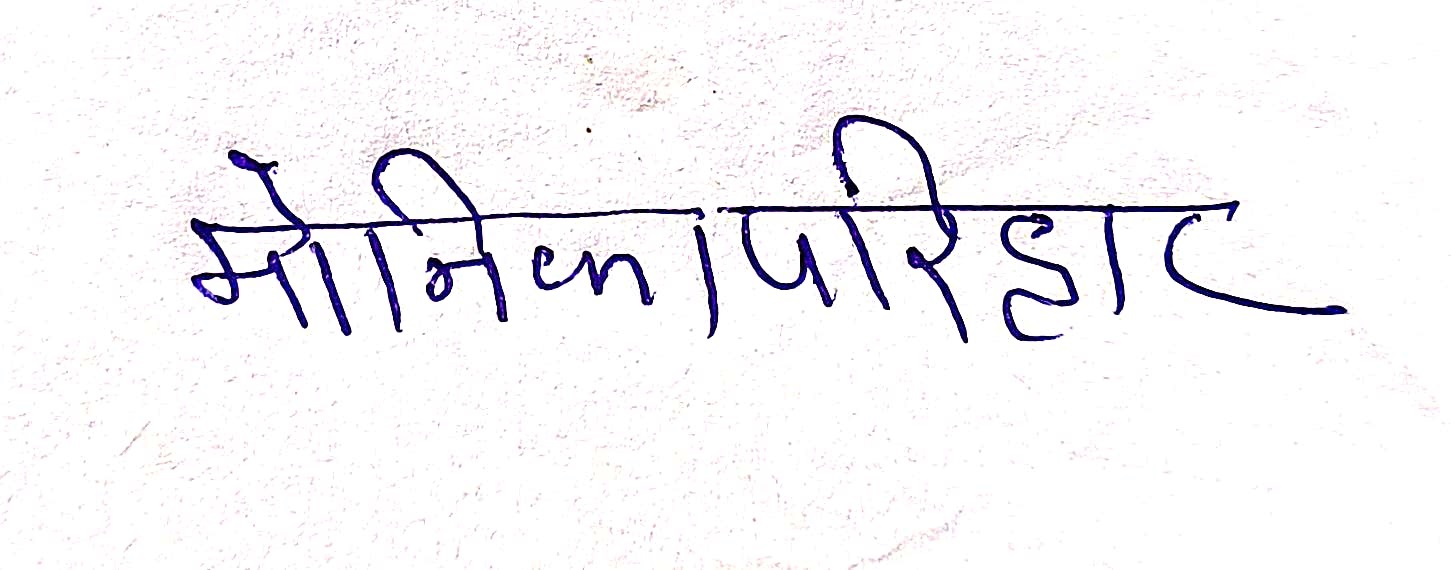 मोनिका परिहार